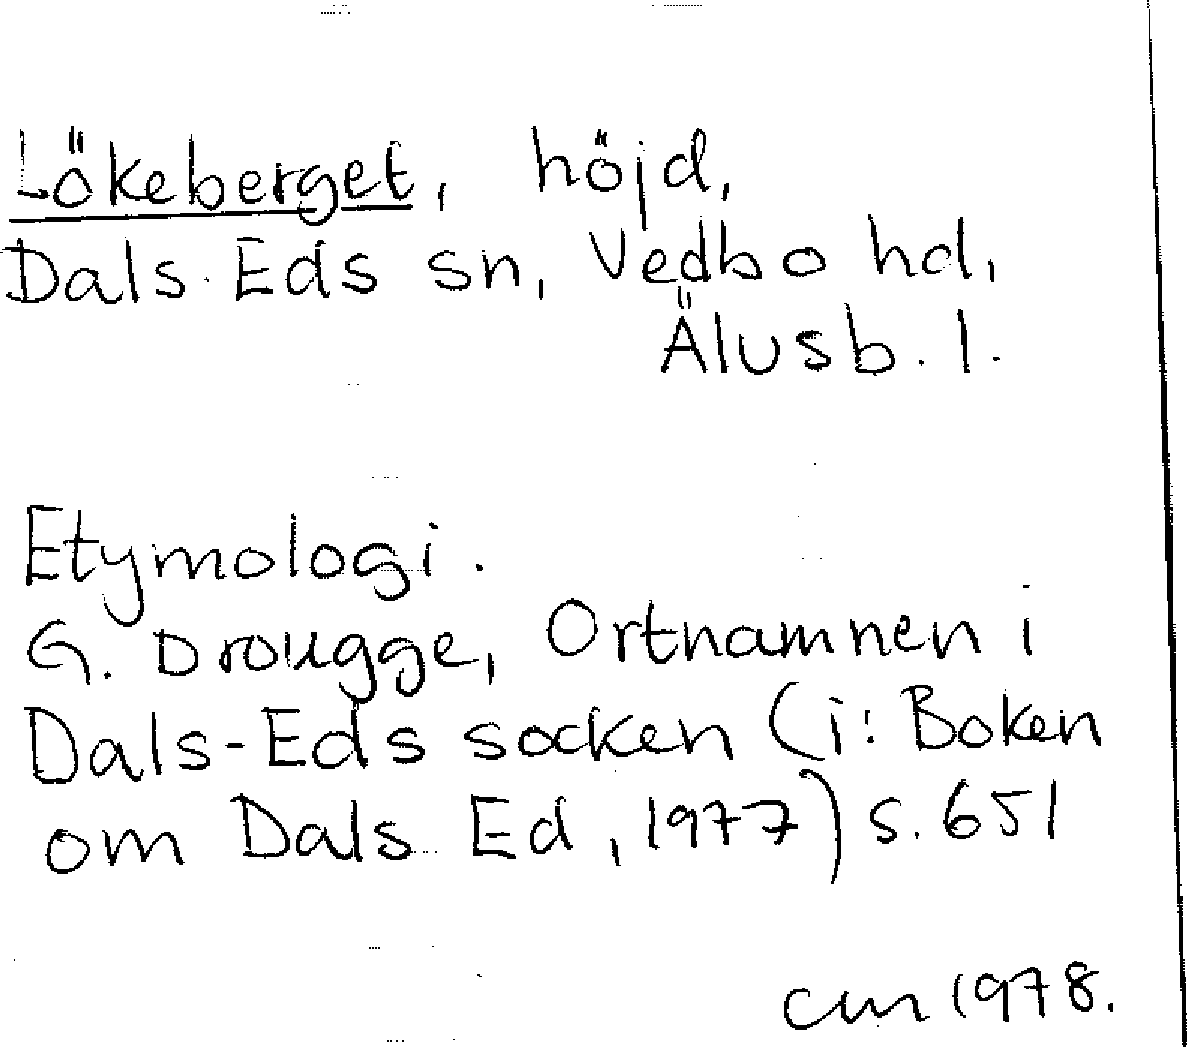 Lökeberget, höjd,
Dals-Eds sn, Vedbo hd,
Älvsb. l.
Etymologi.
G. Drougge, Ortnamnen i
Dals-Eds socken (i: Boken
om Dals Ed, 1977) s. 651
cm 1978.